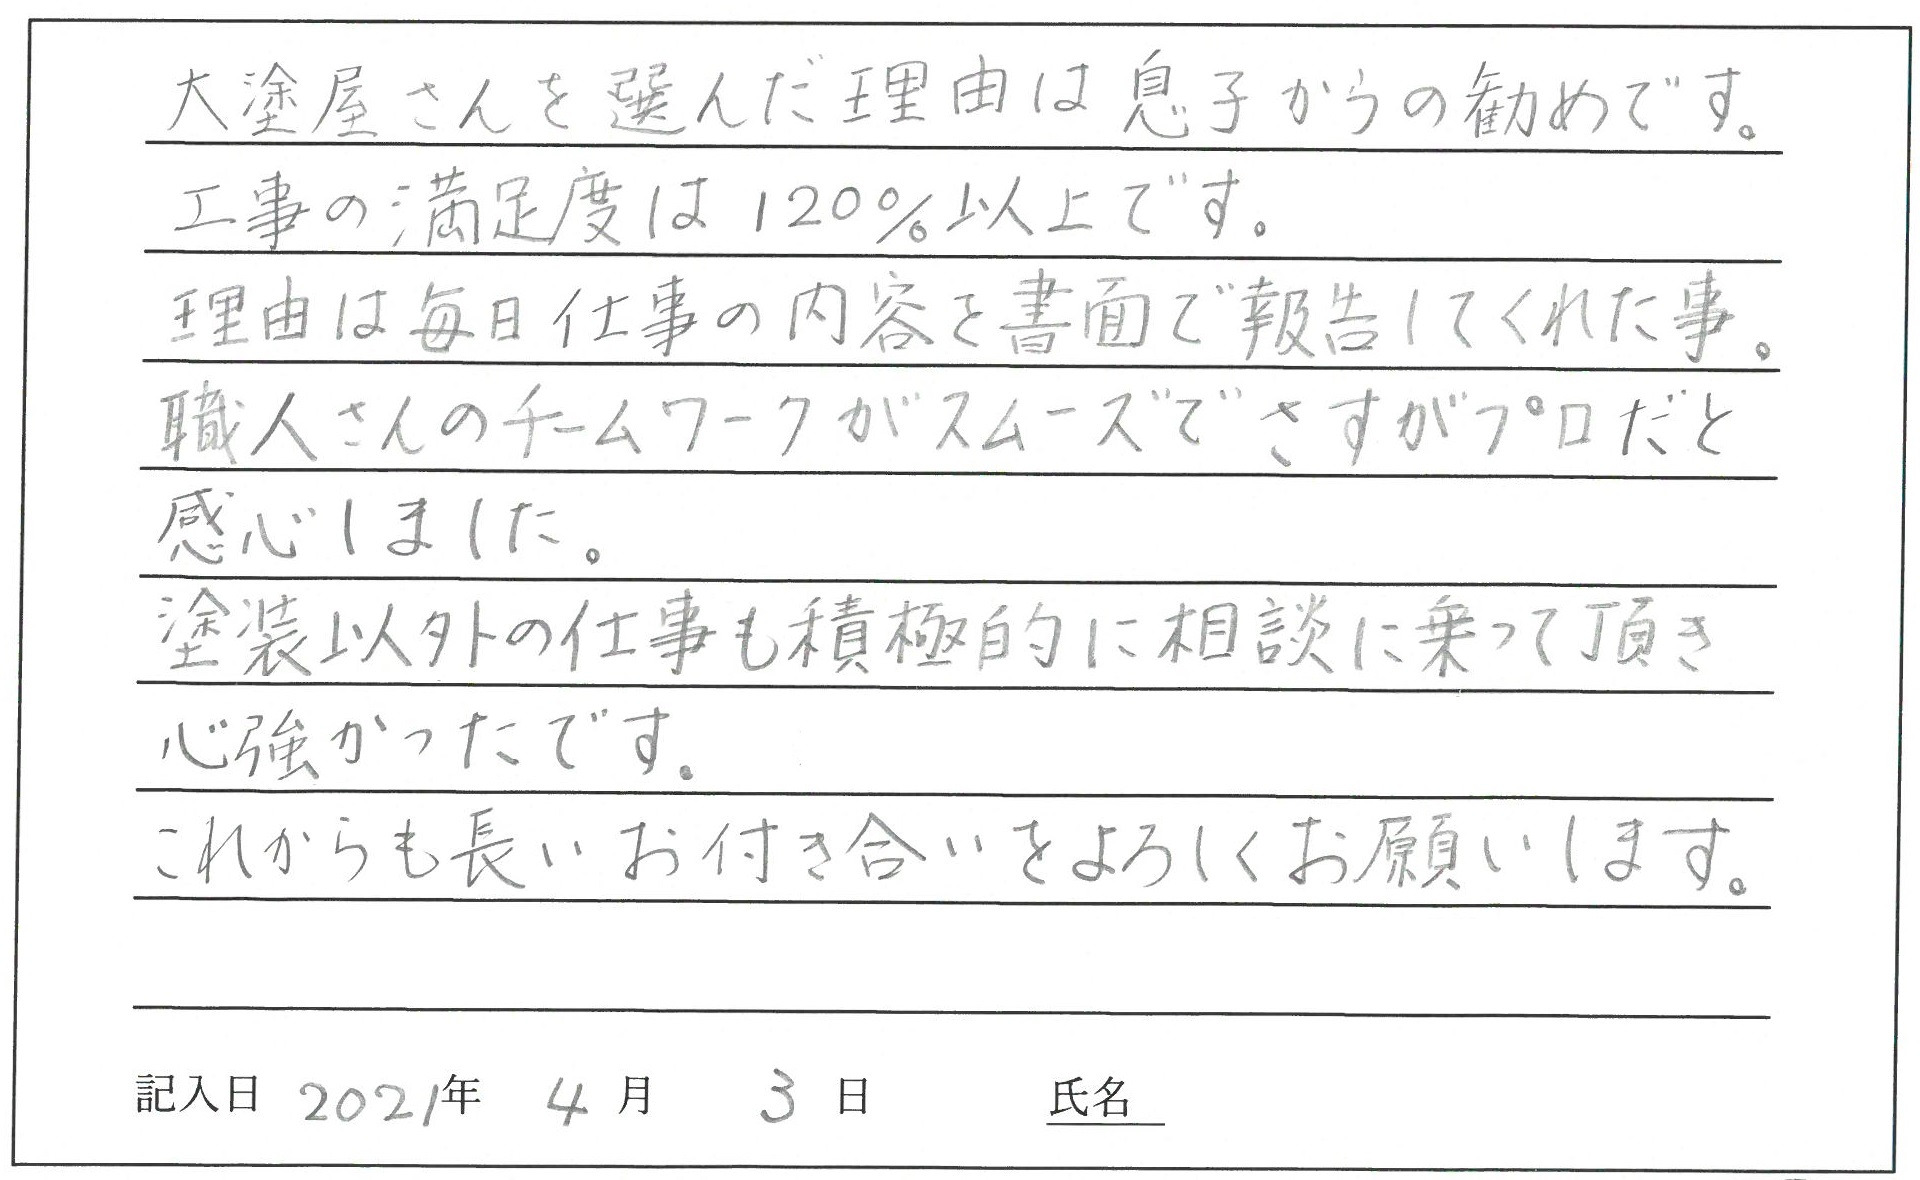 大塗屋さんを選んだ理由は息子からの勧めです。
工事の満足度は120%以上です。
理由は毎日仕事の内容を書面で報告してくれた事。
職人さんのチームワークがスムーズでさすがプロだと
感心しました。
塗装以外の仕事も積極的に相談に乗って頂き
心強かったです。
これからも長いお付き合いをよろしくお願いします。
記入日 2021年 4月 3日 氏名